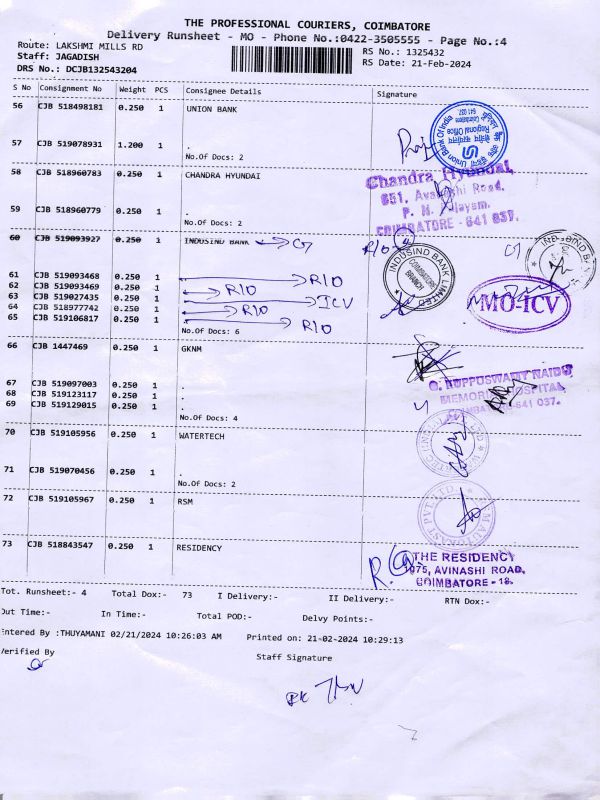 THE PROFESSIONAL COURIERS, COIMBATORE
Delivery Runsheet - MO - Phone No.:0422-3505555 - Page No.:4
Route: LAKSHMI MILLS RD
RS No.: 1325432
Staff: JAGADISH
RS Date: 21-Feb-2024
DRS No.: DCJB132543204
S No Consignment No Weight PCS Consignee Details Signature
56 CJB 518498181 0.250 1 UNION BANK
Union Bank Of India
Regional Office
Coimbatore
641 037
57 CJB 519078931 1.200 1 .
No.Of Docs: 2
58 CJB 518960783 0.250 1 CHANDRA HYUNDAI
Chandra Hyundai,
851, Avanashi Road,
P. N. Palayam,
COIMBATORE - 641 037.
59 CJB 518960779 0.250 1 .
No.Of Docs: 2
60 CJB 519093927 0.250 1 INDUSIND BANK
R/O
INDUSIND BANK LIMITED
COIMBATORE
BRANCH
INDUSIND B
61 CJB 519093468 0.250 1 R/O
62 CJB 519093469 0.250 1 R/O
63 CJB 519027435 0.250 1 ICV
64 CJB 518977742 0.250 1 R/O
65 CJB 519106817 0.250 1 R/O
MO-ICV
No.Of Docs: 6
66 CJB 1447469 0.250 1 GKNM
G. KUPPUSWAMY NAIDU
MEMORIAL HOSPITAL
COIMBATORE-641 037.
67 CJB 519097003 0.250 1 .
68 CJB 519123117 0.250 1 .
69 CJB 519129015 0.250 1 .
No.Of Docs: 4
70 CJB 519105956 0.250 1 WATERTECH
71 CJB 519070456 0.250 1 .
No.Of Docs: 2
72 CJB 519105967 0.250 1 RSM
73 CJB 518843547 0.250 1 RESIDENCY
THE RESIDENCY
1075, AVINASHI ROAD,
COIMBATORE - 18.
Tot. Runsheet:- 4 Total Dox:- 73 I Delivery:- II Delivery:- RTN Dox:-
Out Time:- In Time:- Total POD:- Delvy Points:-
Entered By :THUYAMANI 02/21/2024 10:26:03 AM Printed on: 21-02-2024 10:29:13
Verified By
Staff Signature